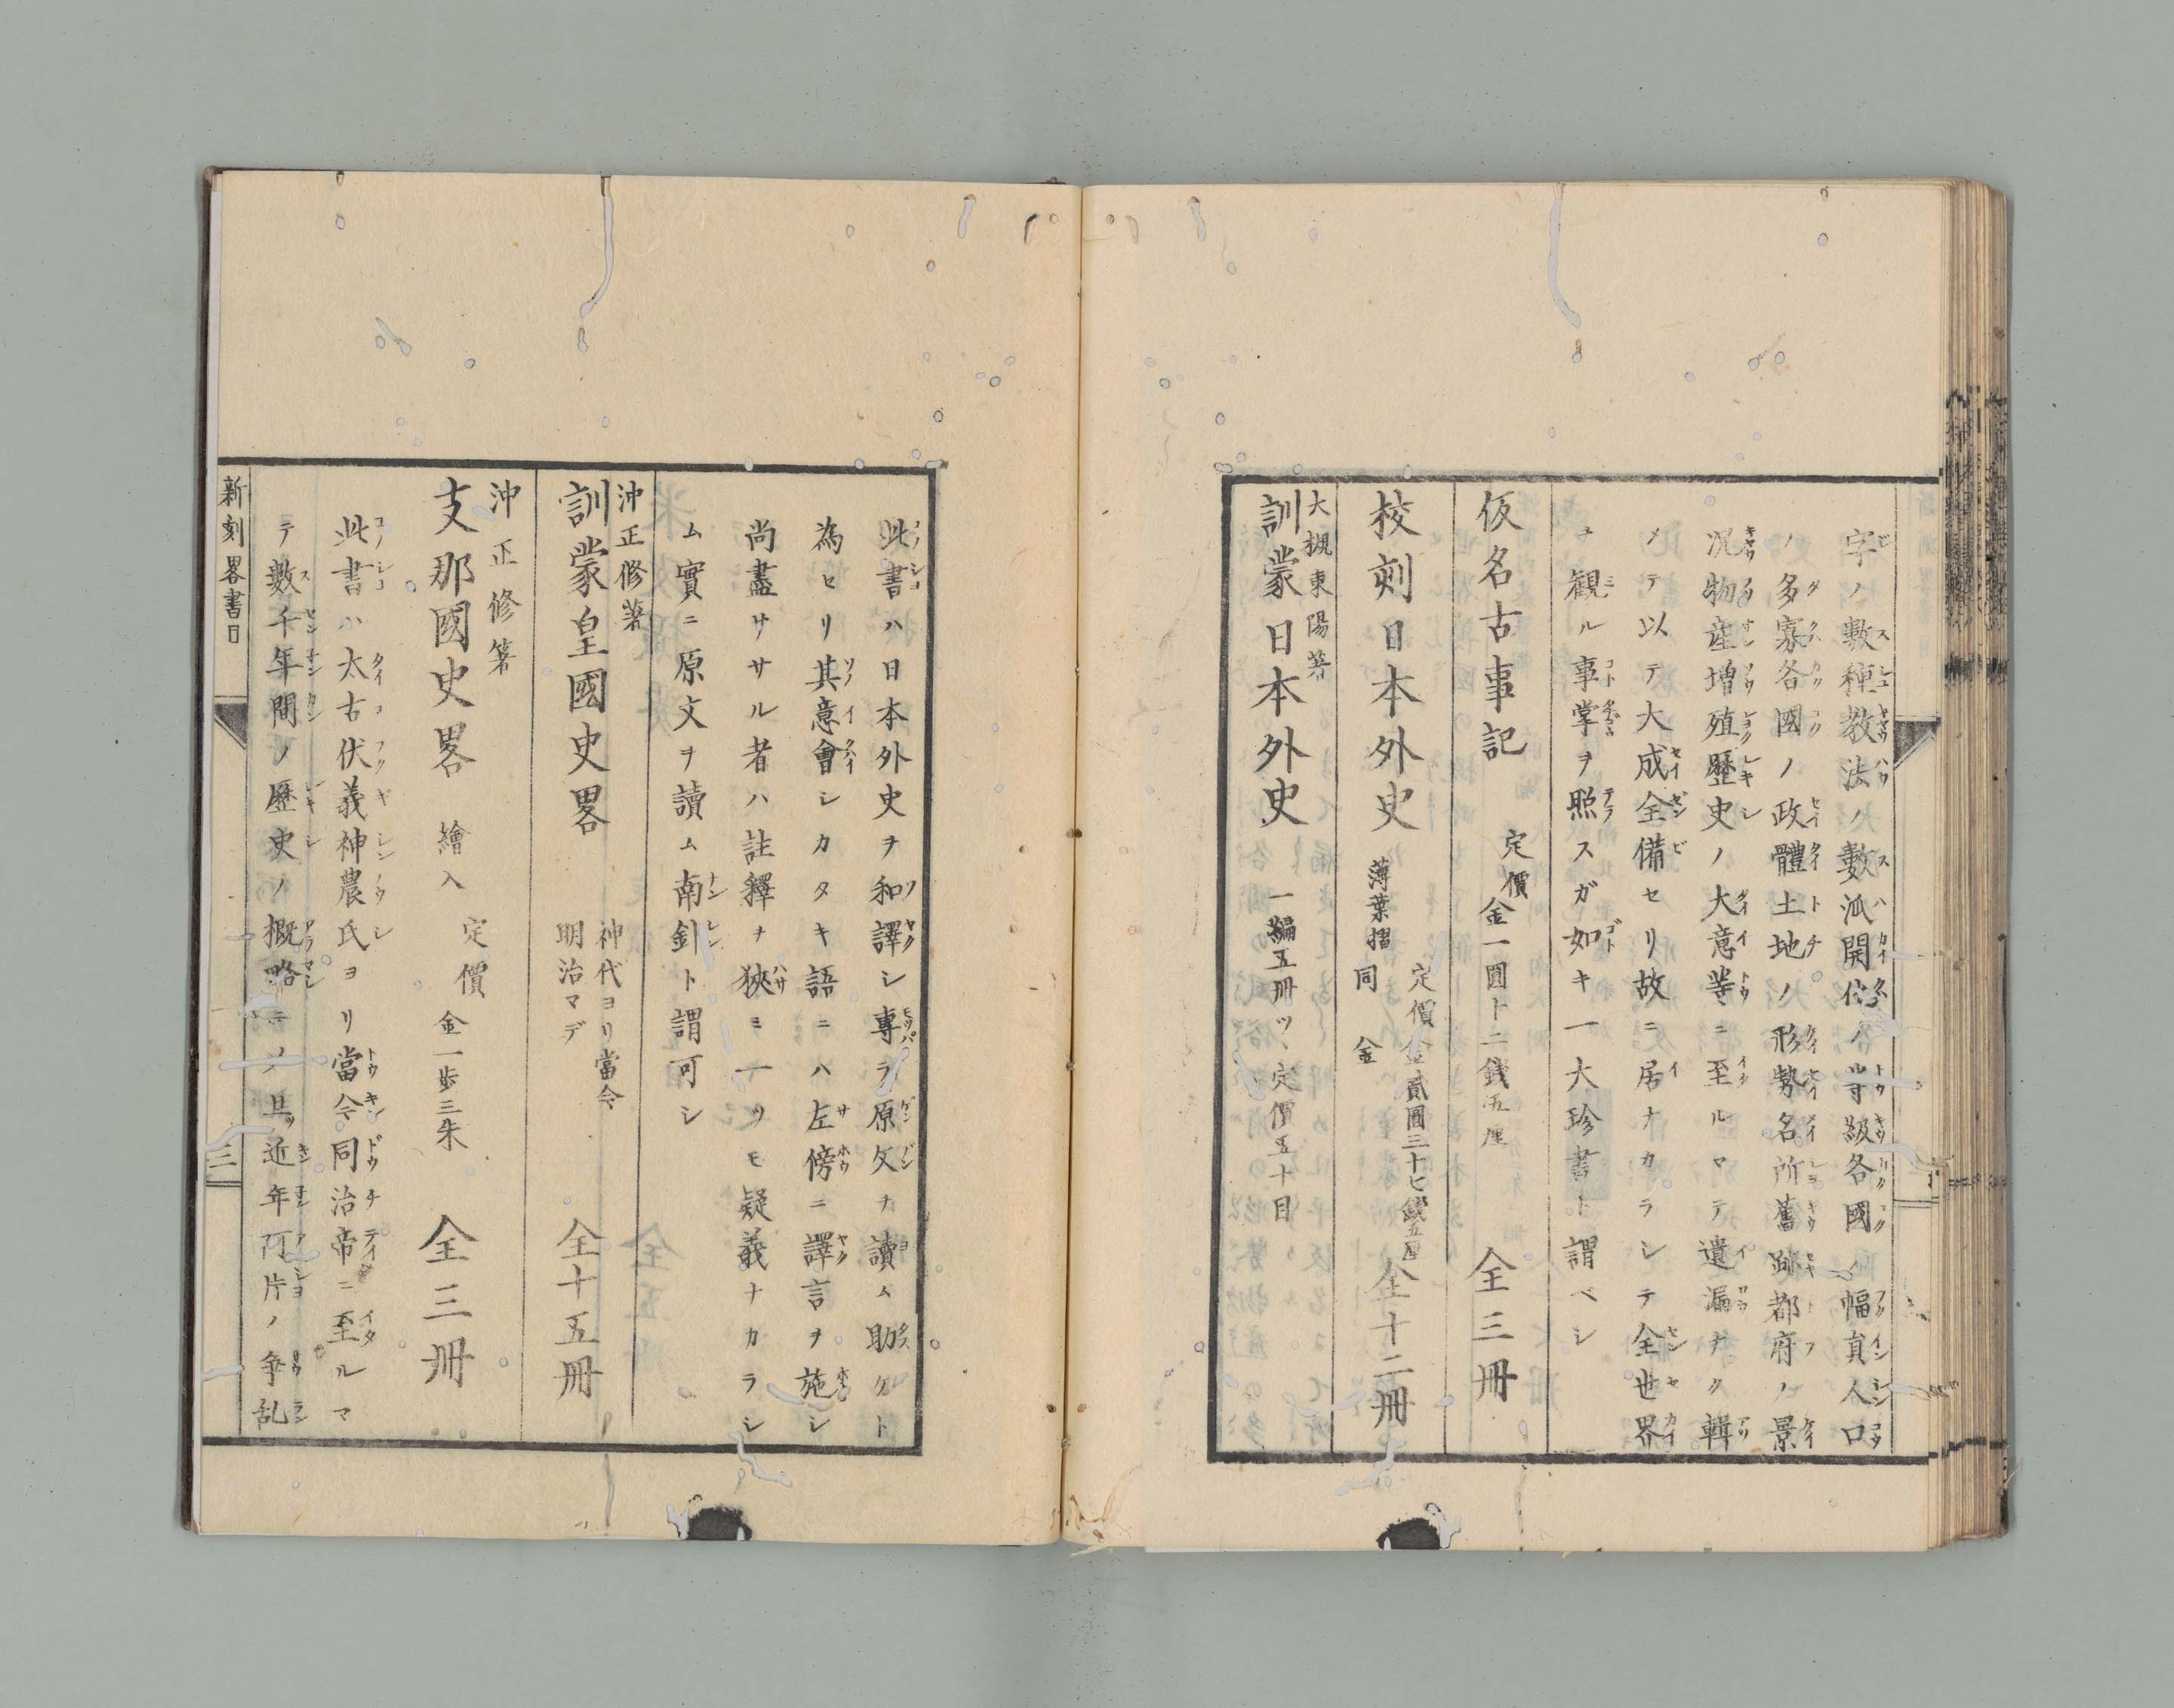 字ノ數種教法ノ數派開化ノ等級各國ノ幅員人口
ノ多寡各國ノ政體土地ノ形勢名所舊跡都府ノ景
況物産増殖歴史ノ大意等ニ至ルマテ遺漏ナク輯
メテ以テ大成全備セリ故ニ居ナカラシテ全世界
ヲ観ル事掌ヲ照スガ如キ一大珍書ト謂ベシ
仮名古事記 定價金一圓十二銭五厘 全三冊
校刻日本外史 定價金貳圓三十七銭五厘 全十二冊
薄葉摺 同 金
大槻東陽著
訓蒙日本外史 一編五冊ツヽ定價五十目
此書ハ日本外史ヲ和譯シ專ラ原文ヲ讀ム助ケト
為セリ其意會シカタキ語ニハ左傍ニ譯言ヲ施シ
尚盡サヽル者ハ註釋ヲ狹ミ一ツモ疑義ナカラシ
ム實ニ原文ヲ讀ム南針ト謂可シ
沖正修著
訓蒙皇國史畧 神代ヨリ當今
明治マデ 全十五冊
沖正修著
支那國史畧 繪入 定價 金一歩三朱 全三冊
此書ハ太古伏羲神農氏ヨリ當今同治帝ニ至ルマ
テ數千年間ノ歴史ノ概略ニノ且近年阿片ノ争乱
新刻畧書目
三